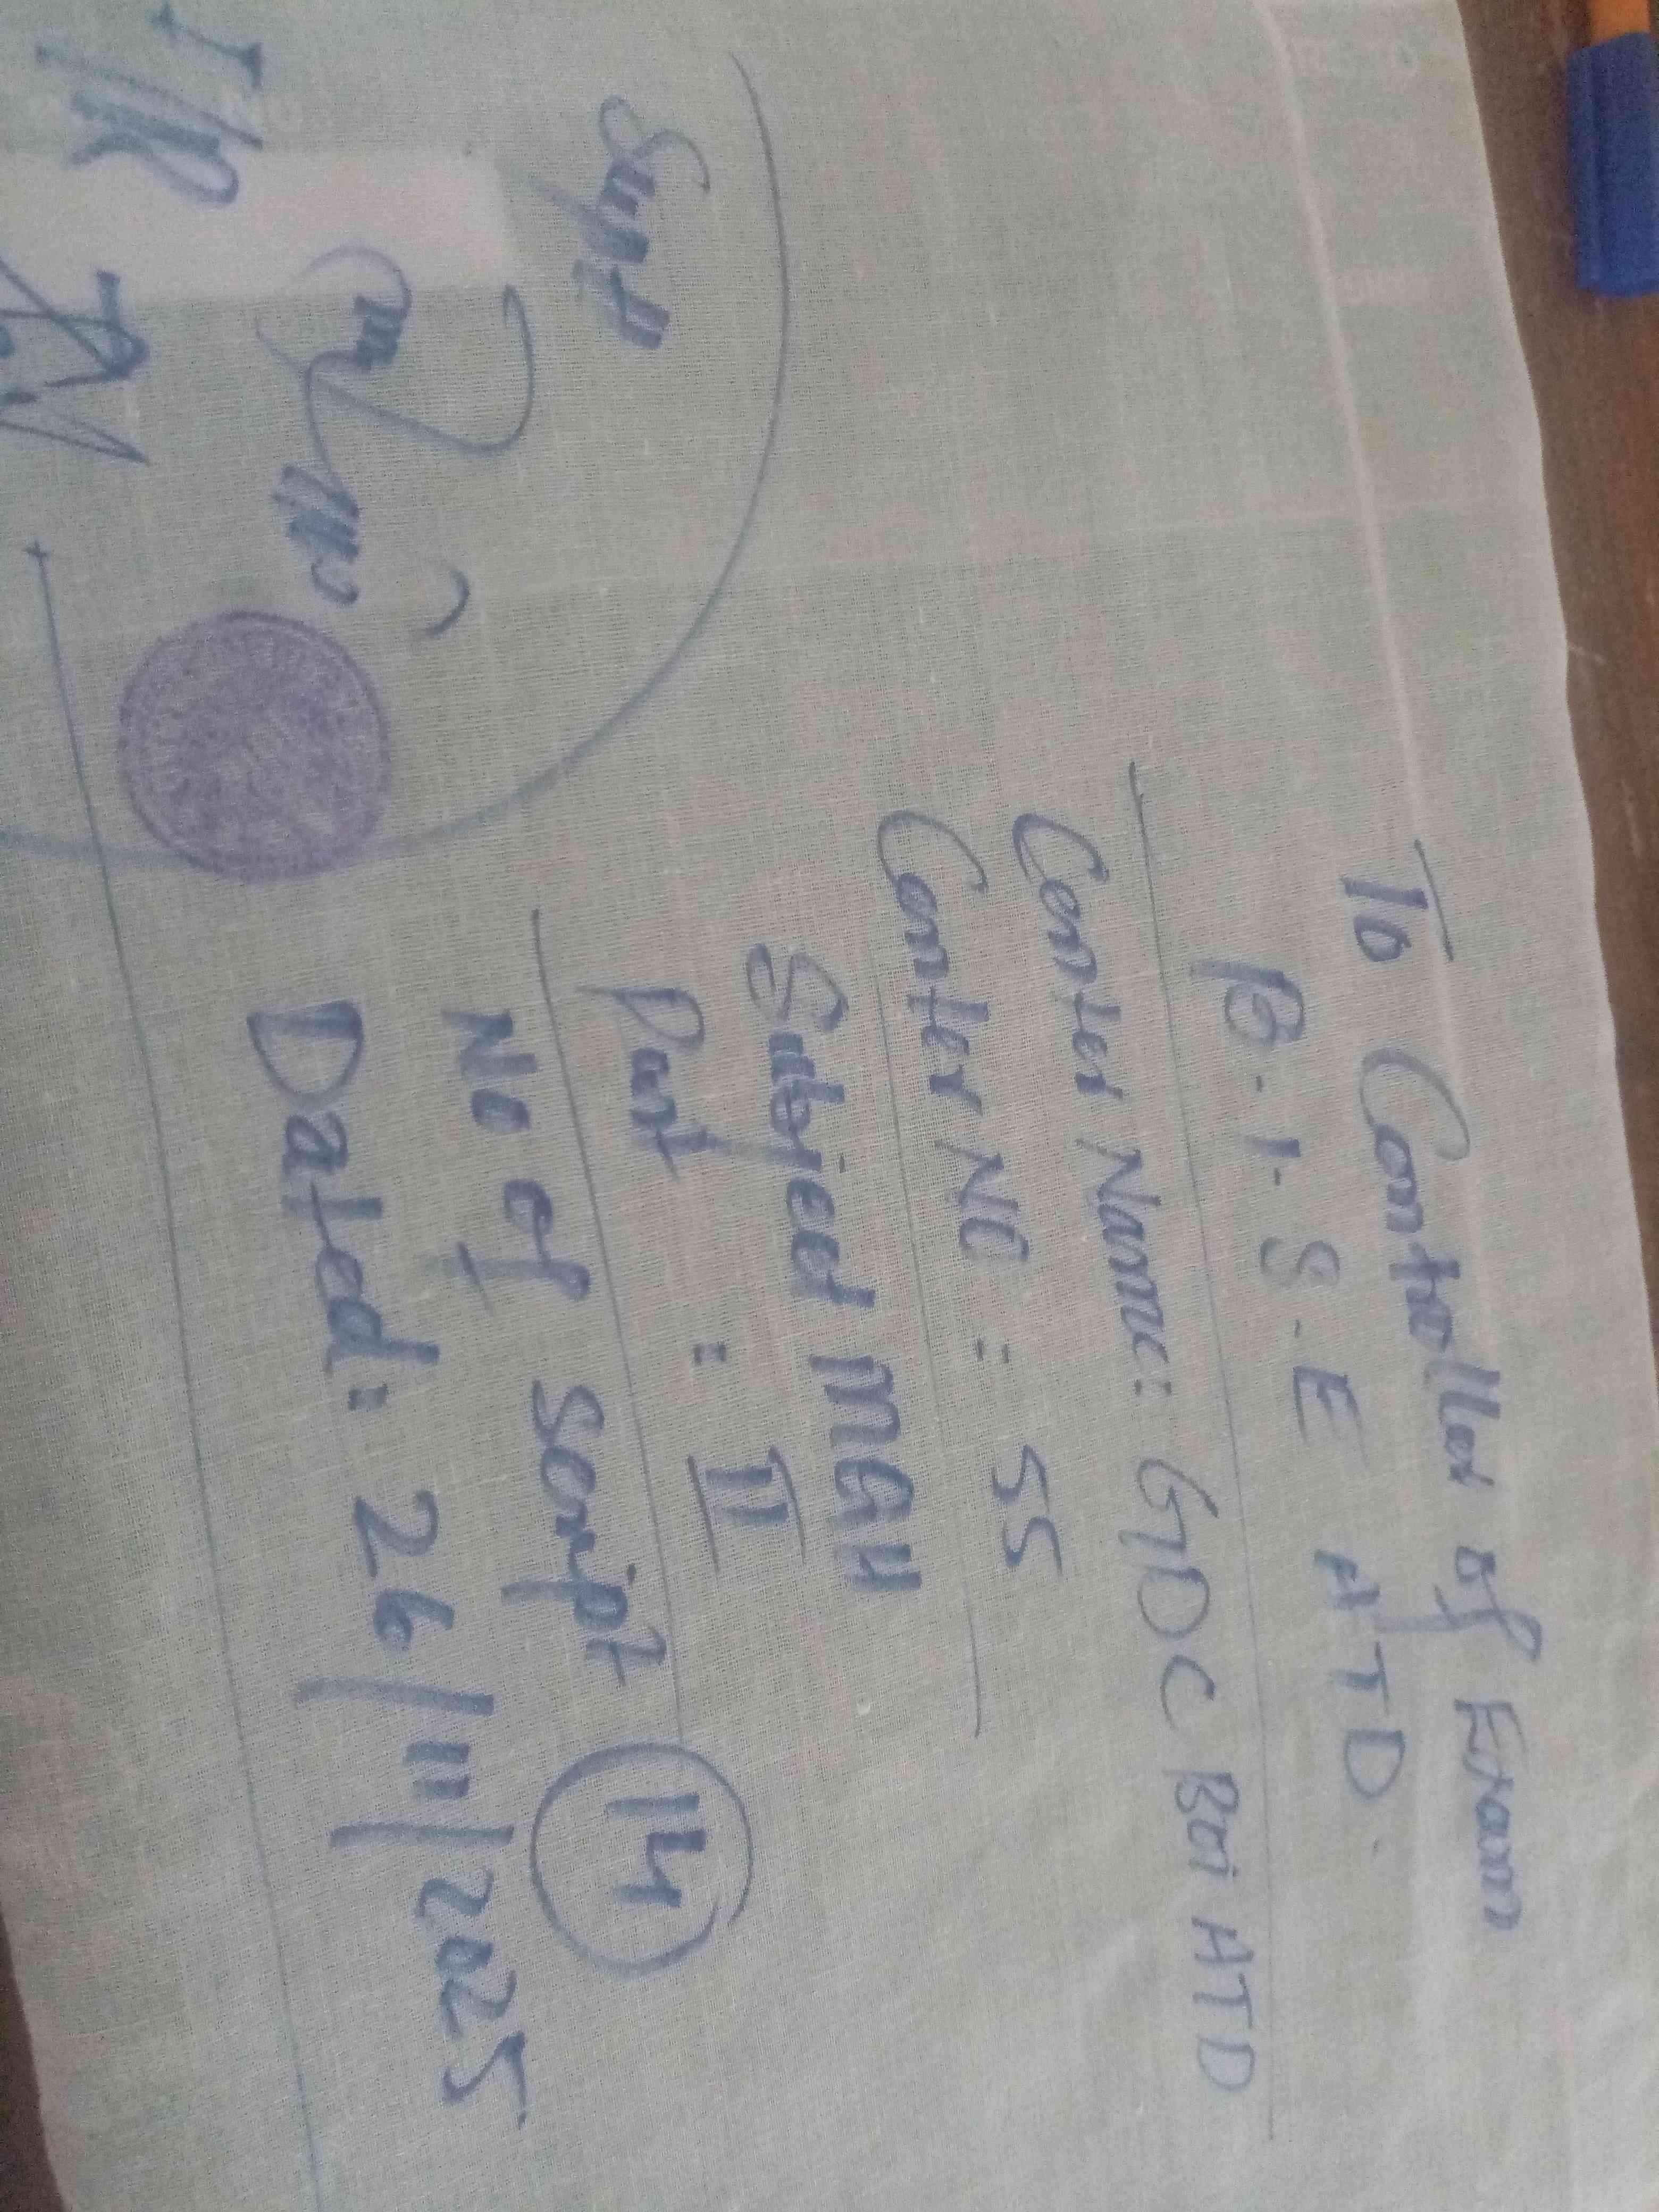 To Controller of Exam
B.I.S.E ATD.
Center Name: GDC Boi ATD
Center NO: 55
Subject MGH
Part : II
No of Script 14
Dated: 26/11/2025
Supdt
I/R